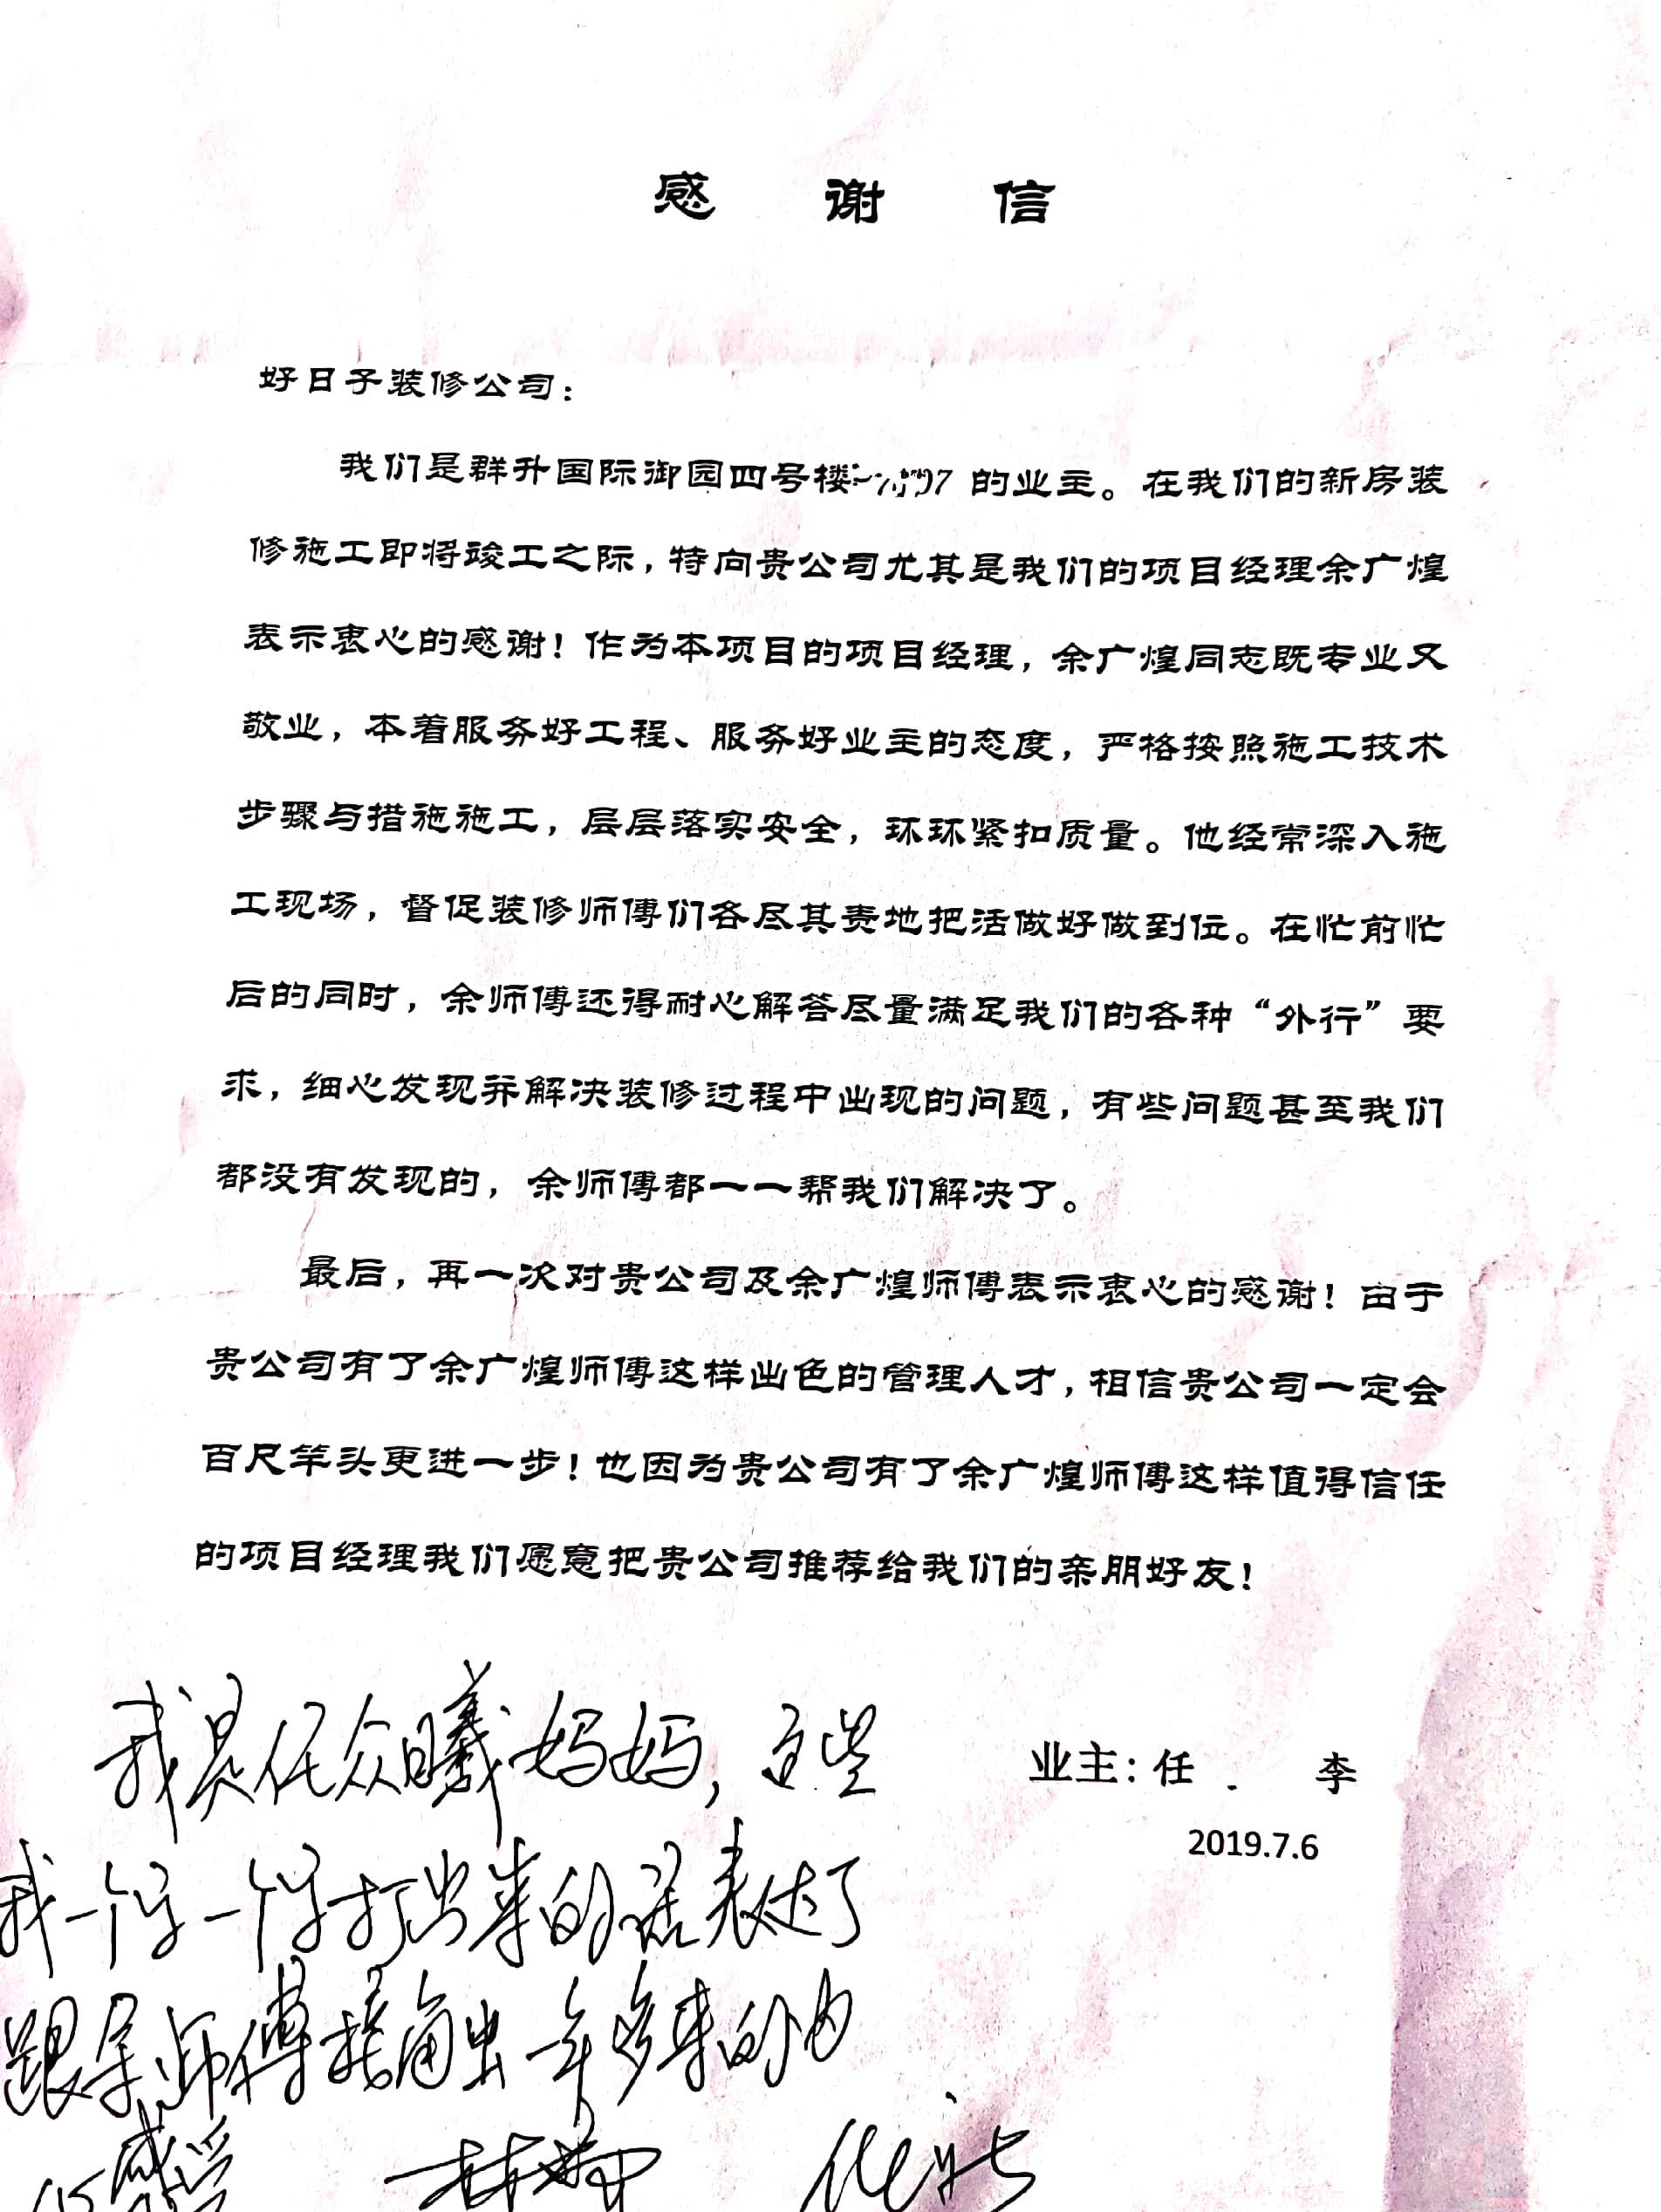 感 谢 信
好日子装修公司：
我们是群升国际御园四号楼 的业主。在我们的新房装
修施工即将竣工之际，特向贵公司尤其是我们的项目经理余广煌
表示衷心的感谢！作为本项目的项目经理，余广煌同志既专业又
敬业，本着服务好工程、服务好业主的态度，严格按照施工技术
步骤与措施施工，层层落实安全，环环紧扣质量。他经常深入施
工现场，督促装修师傅们各尽其责地把活做好做到位。在忙前忙
后的同时，余师傅还得耐心解答尽量满足我们的各种“外行”要
求，细心发现并解决装修过程中出现的问题，有些问题甚至我们
都没有发现的，余师傅都一一帮我们解决了。
最后，再一次对贵公司及余广煌师傅表示衷心的感谢！由于
贵公司有了余广煌师傅这样出色的管理人才，相信贵公司一定会
百尺竿头更进一步！也因为贵公司有了余广煌师傅这样值得信任
的项目经理我们愿意把贵公司推荐给我们的亲朋好友！
业主：任 李
2019.7.6
我是任众曦妈妈，这些
我一个字一个字打出来的话表达了
跟余师傅接触出一年多来的内
感受